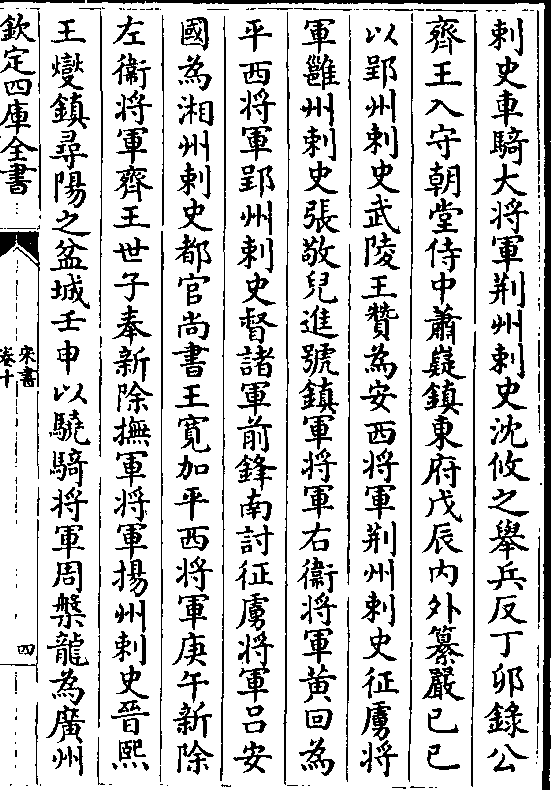 刺史車騎大將軍荆州刺史沈攸之舉兵反丁卯錄公
齊王入守朝堂侍中蕭嶷鎮東府戊辰内外纂嚴己巳
以郢州刺史武陵王贊為安西將軍荆州刺史征虜將
軍雝州刺史張敬兒進號鎮軍將軍右衞將軍黄回為
平西將軍郢州刺史督諸軍前鋒南討征虜將軍吕安
國為湘州刺史都官尚書王寛加平西將軍庚午新除
左衞將軍齊王世子奉新除撫軍將軍揚州刺史晉熙
王燮鎮尋陽之盆城壬申以驍騎將軍周槃龍為廣州
欽定四庫全書
宋書
卷十
四